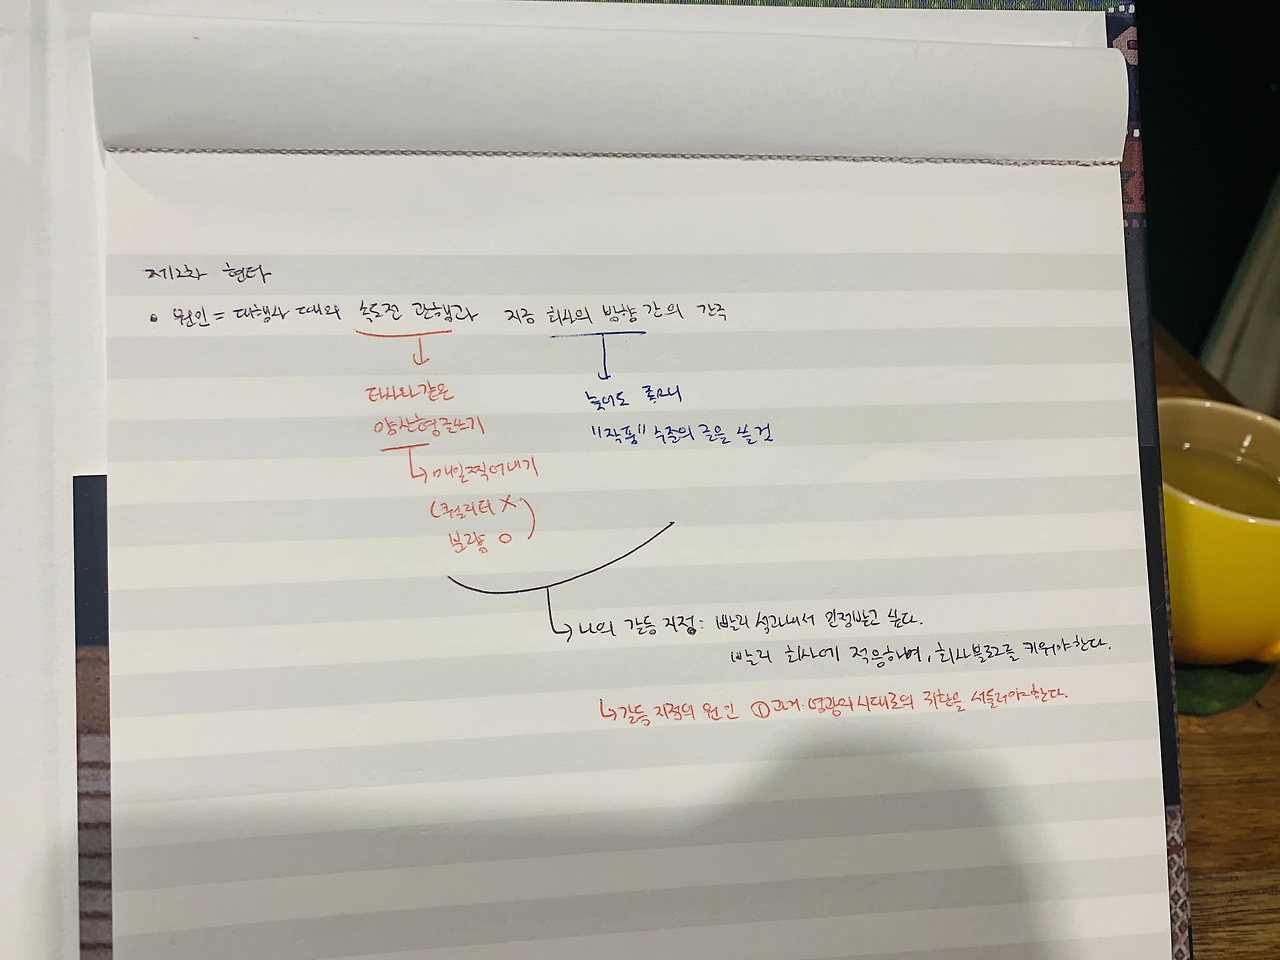 제2차 현타
• 원인 = 대행사 때의 속도전 관행과 지금 회사의 방향 간의 간극
타사와 같은
양산형 글쓰기
↳ 매일 찍어내기
(퀄리티 X
분량 O)
늦어도 좋으니
"작품" 수준의 글을 쓸 것
↳ 나의 갈등 지점: 빨리 성과내서 인정받고 싶다.
빨리 회사에 적응하며, 회사블로그를 키워야한다.
↳ 갈등 지점의 원인 ① 과거 영광의 시대로의 귀환을 서둘러야 한다.